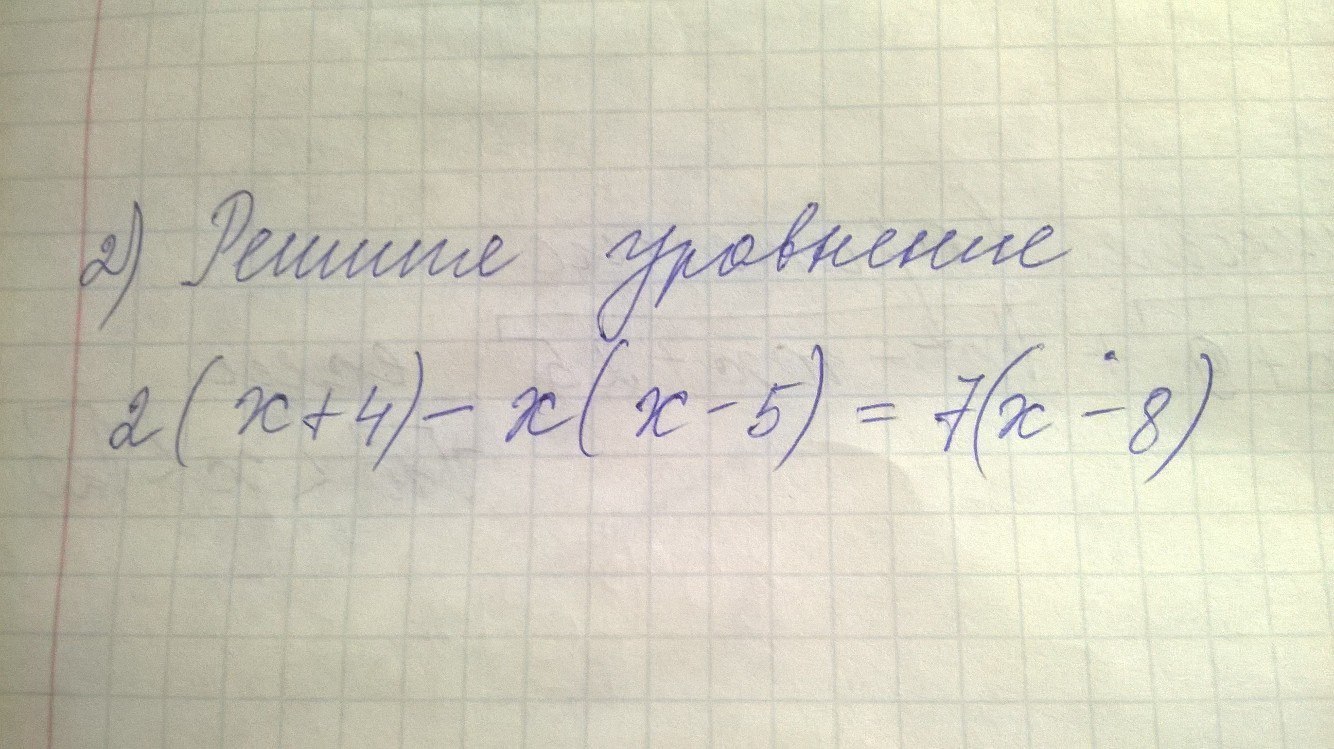 2) Решите уравнение
2(x+4) - x(x-5) = 7(x-8)